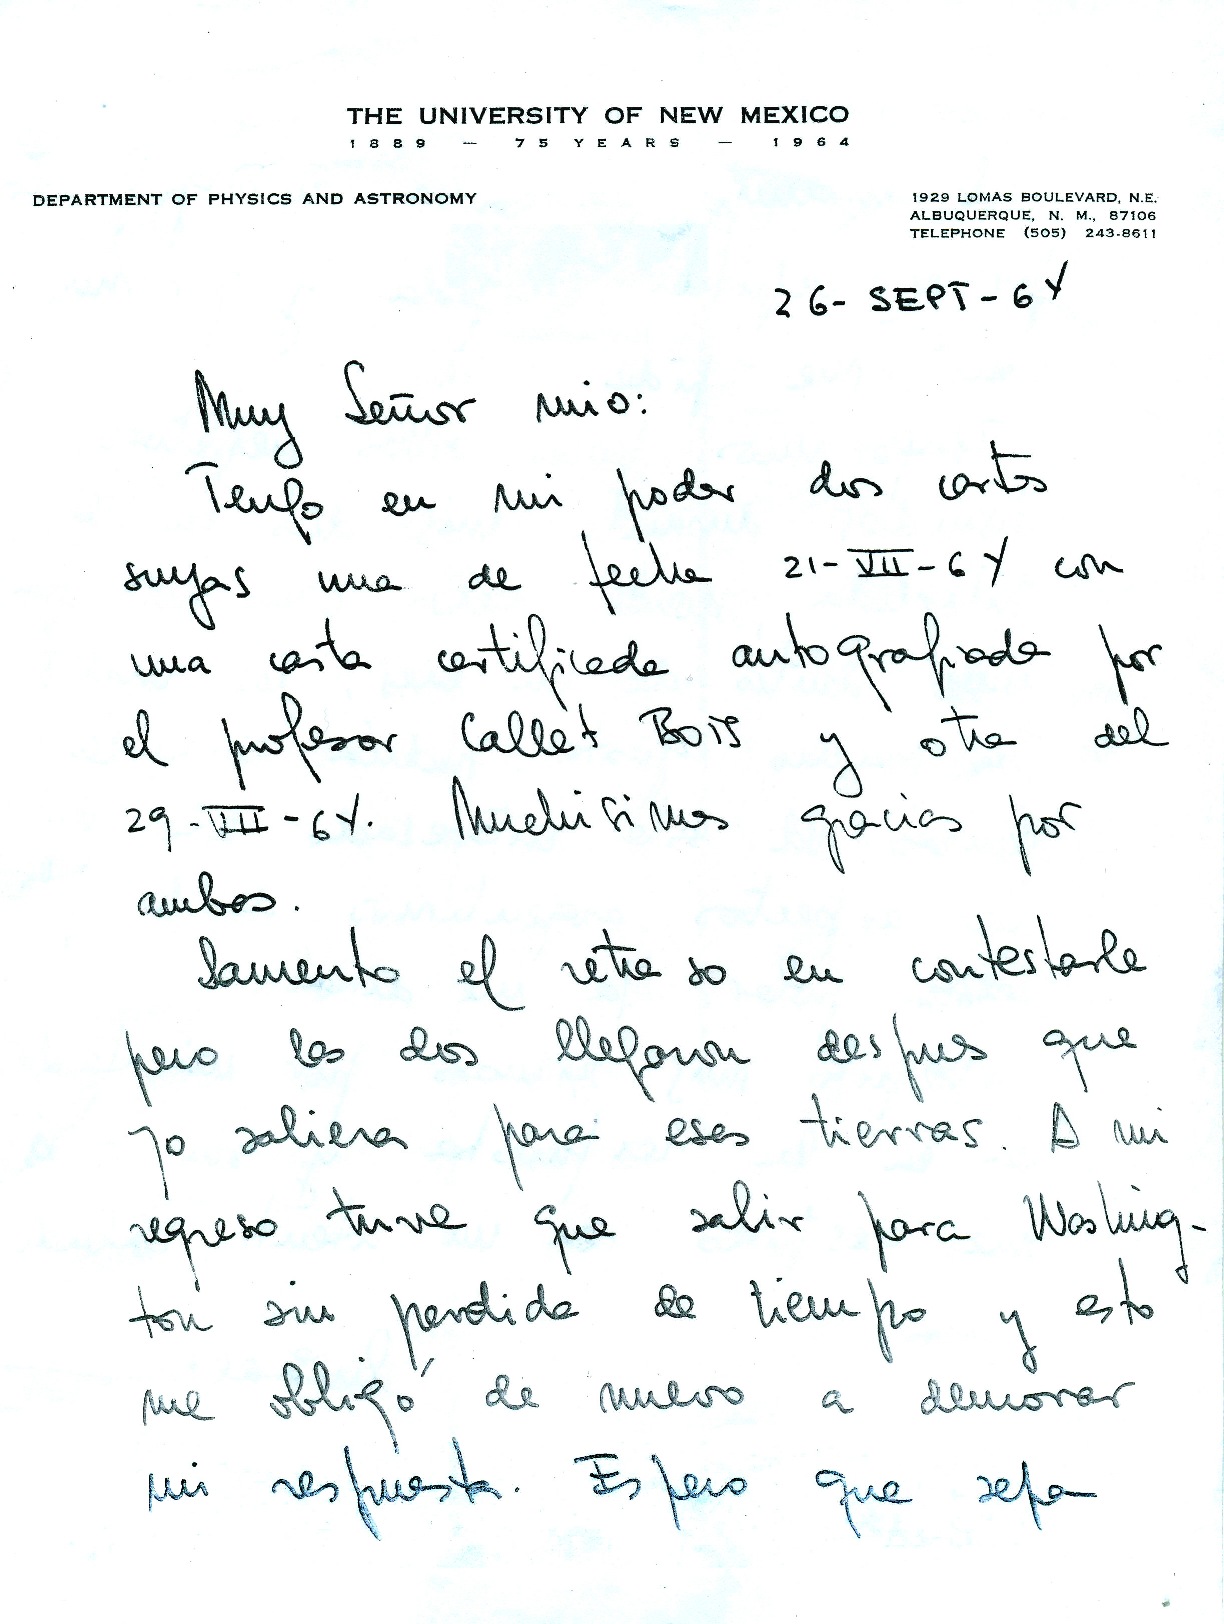 THE UNIVERSITY OF NEW MEXICO
1889 — 75 YEARS — 1964
DEPARTMENT OF PHYSICS AND ASTRONOMY
1929 LOMAS BOULEVARD, N.E.
ALBUQUERQUE, N. M., 87106
TELEPHONE (505) 243-8611
26- SEPT - 64
Muy Señor mio:
Tengo en mi poder dos cartas
suyas una de fecha 21-VII-64 con
una carta certificada autografiada por
el profesor Callet Bois y otra del
29-VII-64. Muchisimas gracias por
ambas.
Lamento el retraso en contestarle
pero las dos llegaron despues que
yo saliera para esas tierras. A mi
regreso tuve que salir para Washing-
ton sin perdida de tiempo y esto
me obligó de nuevo a demorar
mi respuesta. Espero que sepa